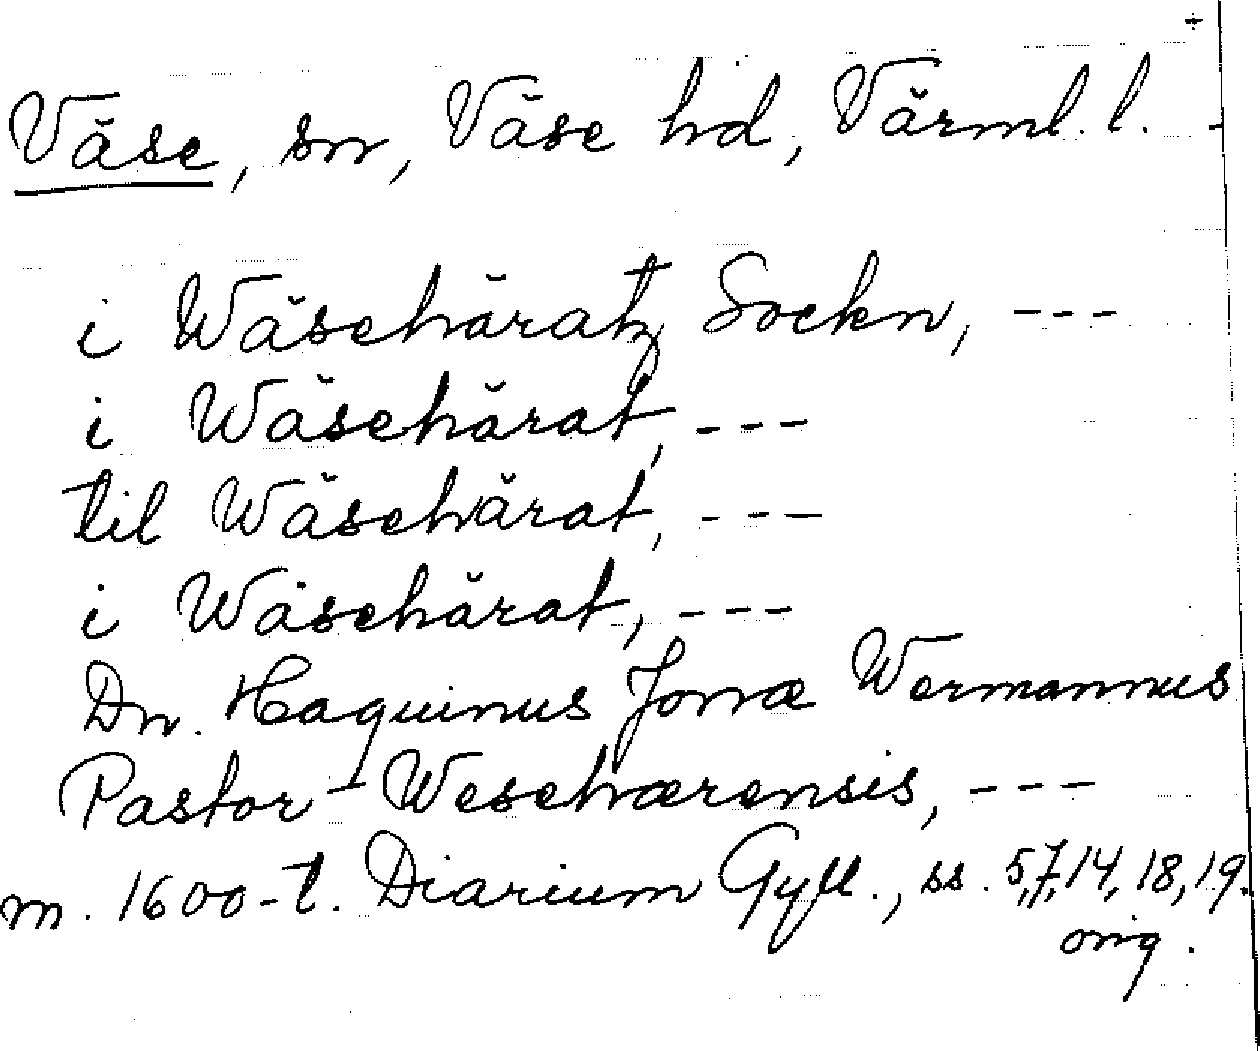 Väse, sn, Väse hd, Värml. l.
i Wäsehäratz Sockn, ---
i Wäsehärat, ---
til Wäsehärat, ---
i Wäsehärat, ---
Dn. Haquinus Jonæ Wermannus
Pastor Wesehærensis, ---
m. 1600-t. Diarium Gyll., ss. 5, 7, 14, 18, 19.
orig.